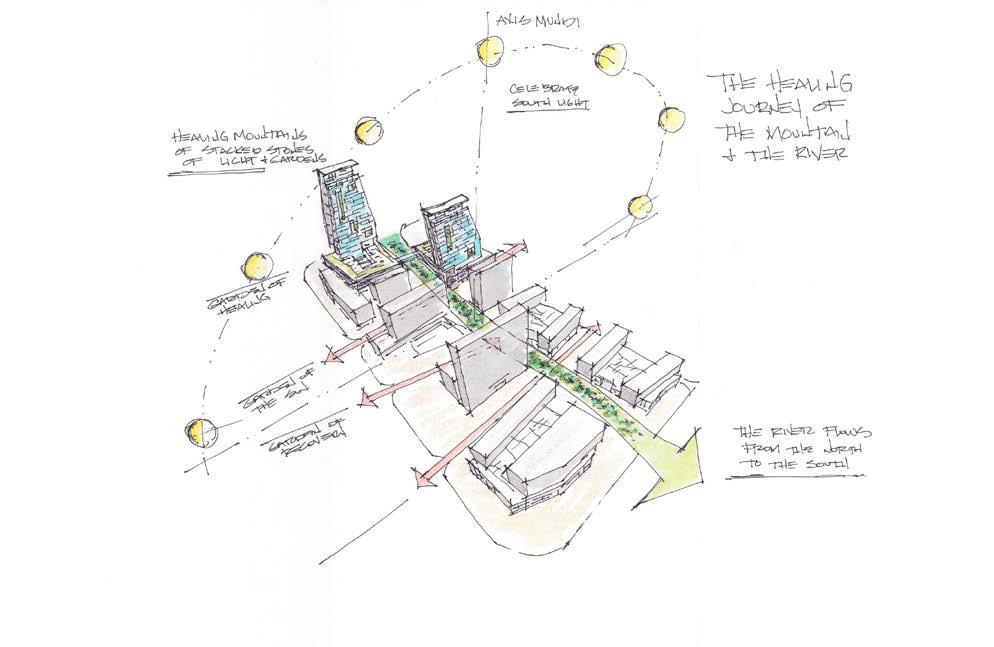 AXIS MUNDI
CELEBRATE
SOUTH LIGHT
THE HEALING
JOURNEY OF
THE MOUNTAIN
& THE RIVER
HEALING MOUNTAINS
OF STACKED STONES
OF LIGHT & GARDENS
GARDEN OF
HEALING
GARDEN OF
THE SUN
GARDEN OF
RECOVERY
THE RIVER FLOWS
FROM THE NORTH
TO THE SOUTH